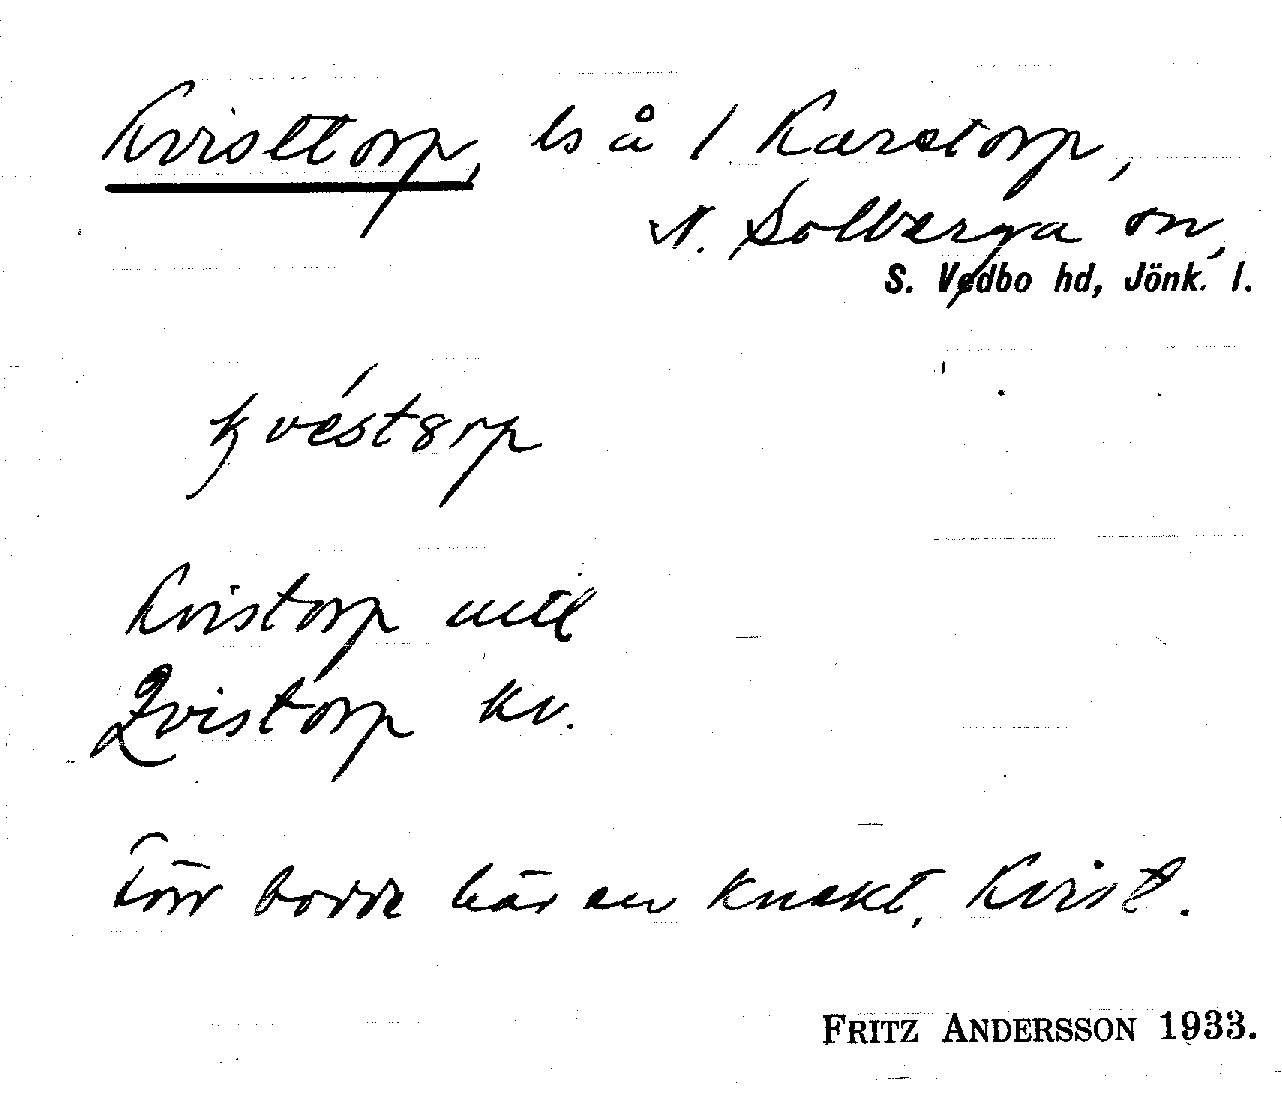 Kvisttorp, ls å 1 Karstorp,
N. Solberga sn,
S. Vedbo hd, Jönk. l.
kvéstorp
Kvistorp mtl
Qvistorp kv.
Förr bodde här en knekt, Kvist.
FRITZ ANDERSSON 1933.